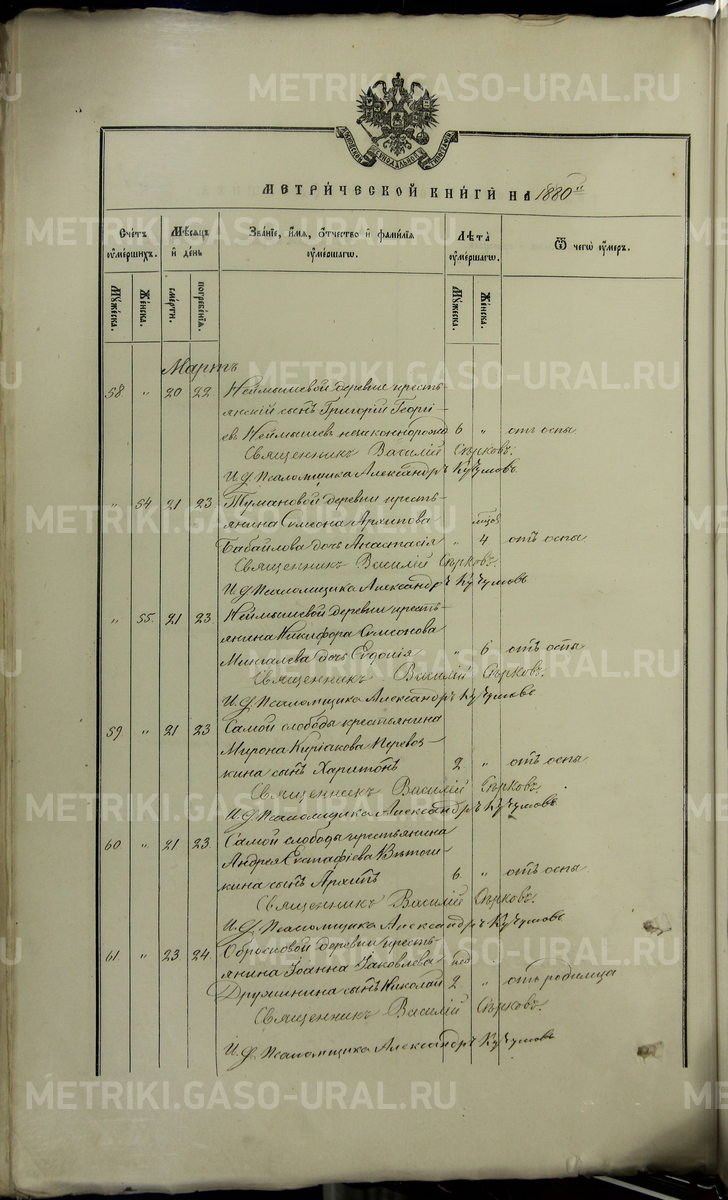 METRIKI.GASO-URAL.RU
МЕТРИ́ЧЕСКОЙ КНИ́ГИ НА 1880й
Сче́тъ оу҆ме́ршихъ.
Мѣ́сяцъ и҆ де́нь
Зва́нїе, и҆́мя, ѻ҆́тчество и҆ фами́лїя оу҆ме́ршагѡ.
Лѣ́та оу҆ме́ршагѡ.
Ѿ чегѡ̀ оу҆́меръ.
Му́жеска.
Же́нска.
сме́рти.
погребе́нїя.
Му́жеска.
Же́нска.
Мартъ
58 " 20 22 Неймышевой деревни кресть-
янскій сынъ Григорій Георгі-
евъ Неймышев незаконнорожд 6 " отъ оспы
Священникъ Василій Сѣрковъ.
И. д. Псаломщика Александръ Кучумовъ
" 54 21 23 Тумановой деревни кресть-
янина Симеона Архипова мцов
Бабайлова дочь Анастасія " 4 отъ оспы
Священникъ Василій Сѣрковъ.
И. д. Псаломщика Александръ Кучумовъ
" 55. 21 23 Неймышевой деревни кресть-
янина Никифора Симеонова
дочь Евдокія " 6 отъ оспы
Священникъ Василій Сѣрковъ.
И. д. Псаломщика Александръ Кучумовъ
59 " 21 23 Самой слободы крестьянина
Мирона Киріакова Перевоз-
кина сынъ Харитонъ 2 " отъ оспы
Священникъ Василій Сѣрковъ.
И. д. Псаломщика Александръ Кучумовъ
60 " 21 23 Самой слободы крестьянина
Андрея Евстафіева
кина сынъ Архипъ 6 " отъ оспы
Священникъ Василій Сѣрковъ.
И. д. Псаломщика Александръ Кучумовъ
61 " 23 24 Обросковой деревни кресть
янина Іоанна Іаковлева нед
Дружинина сынъ Николай 2 " отъ родимца
Священникъ Василій Сѣрковъ.
И. д. Псаломщика Александръ Кучумовъ
METRIKI.GASO-URAL.RU